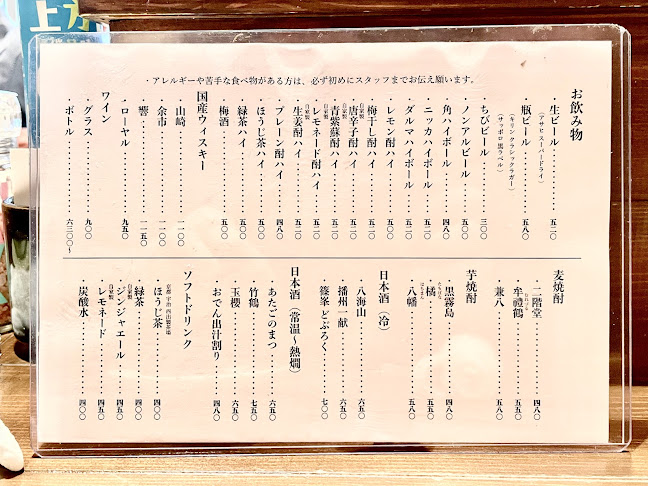 上方
・アレルギーや苦手な食べ物がある方は、必ず初めにスタッフまでお伝え願います。
お飲み物
・生ビール・・・・・・五二〇
(アサヒ スーパードライ)
・瓶ビール・・・・・・五八〇
(キリン クラシックラガー)
(サッポロ黒ラベル)
・ちびビール・・・・・・三〇〇
・ノンアルビール・・・・・・五〇〇
・角ハイボール・・・・・・四八〇
・ニッカハイボール・・・・・・五二〇
・ダルマハイボール・・・・・・五二〇
・レモン酎ハイ・・・・・・五〇〇
・梅干し酎ハイ・・・・・・五二〇
・自家製 唐辛子酎ハイ・・・・・・五二〇
・自家製 青紫蘇酎ハイ・・・・・・五二〇
・自家製 レモネード酎ハイ・・・・・・五二〇
・自家製 生姜酎ハイ・・・・・・五二〇
・プレーン酎ハイ・・・・・・四八〇
・ほうじ茶ハイ・・・・・・五〇〇
・緑茶ハイ・・・・・・五〇〇
・梅酒・・・・・・五〇〇
国産ウィスキー
・山崎・・・・・・一一〇〇
・余市・・・・・・一一〇〇
・響・・・・・・一一五〇
・ローヤル・・・・・・九五〇
ワイン
・グラス・・・・・・九〇〇
・ボトル・・・・・・六三〇〇〜
麦焼酎
・二階堂・・・・・・四八〇
・牟禮鶴・・・・・・五五〇
・兼八・・・・・・五八〇
芋焼酎
・黒霧島・・・・・・四八〇
・橘・・・・・・五五〇
・八幡・・・・・・五八〇
日本酒(冷)
・八海山・・・・・・六五〇
・播州一献・・・・・・六五〇
・篠峯 どぶろく・・・・・・七〇〇
日本酒(常温〜熱燗)
・あたごのまつ・・・・・・六五〇
・竹鶴・・・・・・七五〇
・玉櫻・・・・・・六五〇
・おでん出汁割り・・・・・・四八〇
ソフトドリンク
京都 宇治
・ほうじ茶・・・・・・四〇〇
・緑茶・・・・・・四〇〇
・自家製 ジンジャエール・・・・・・四五〇
・自家製 レモネード・・・・・・四五〇
・炭酸水・・・・・・四〇〇